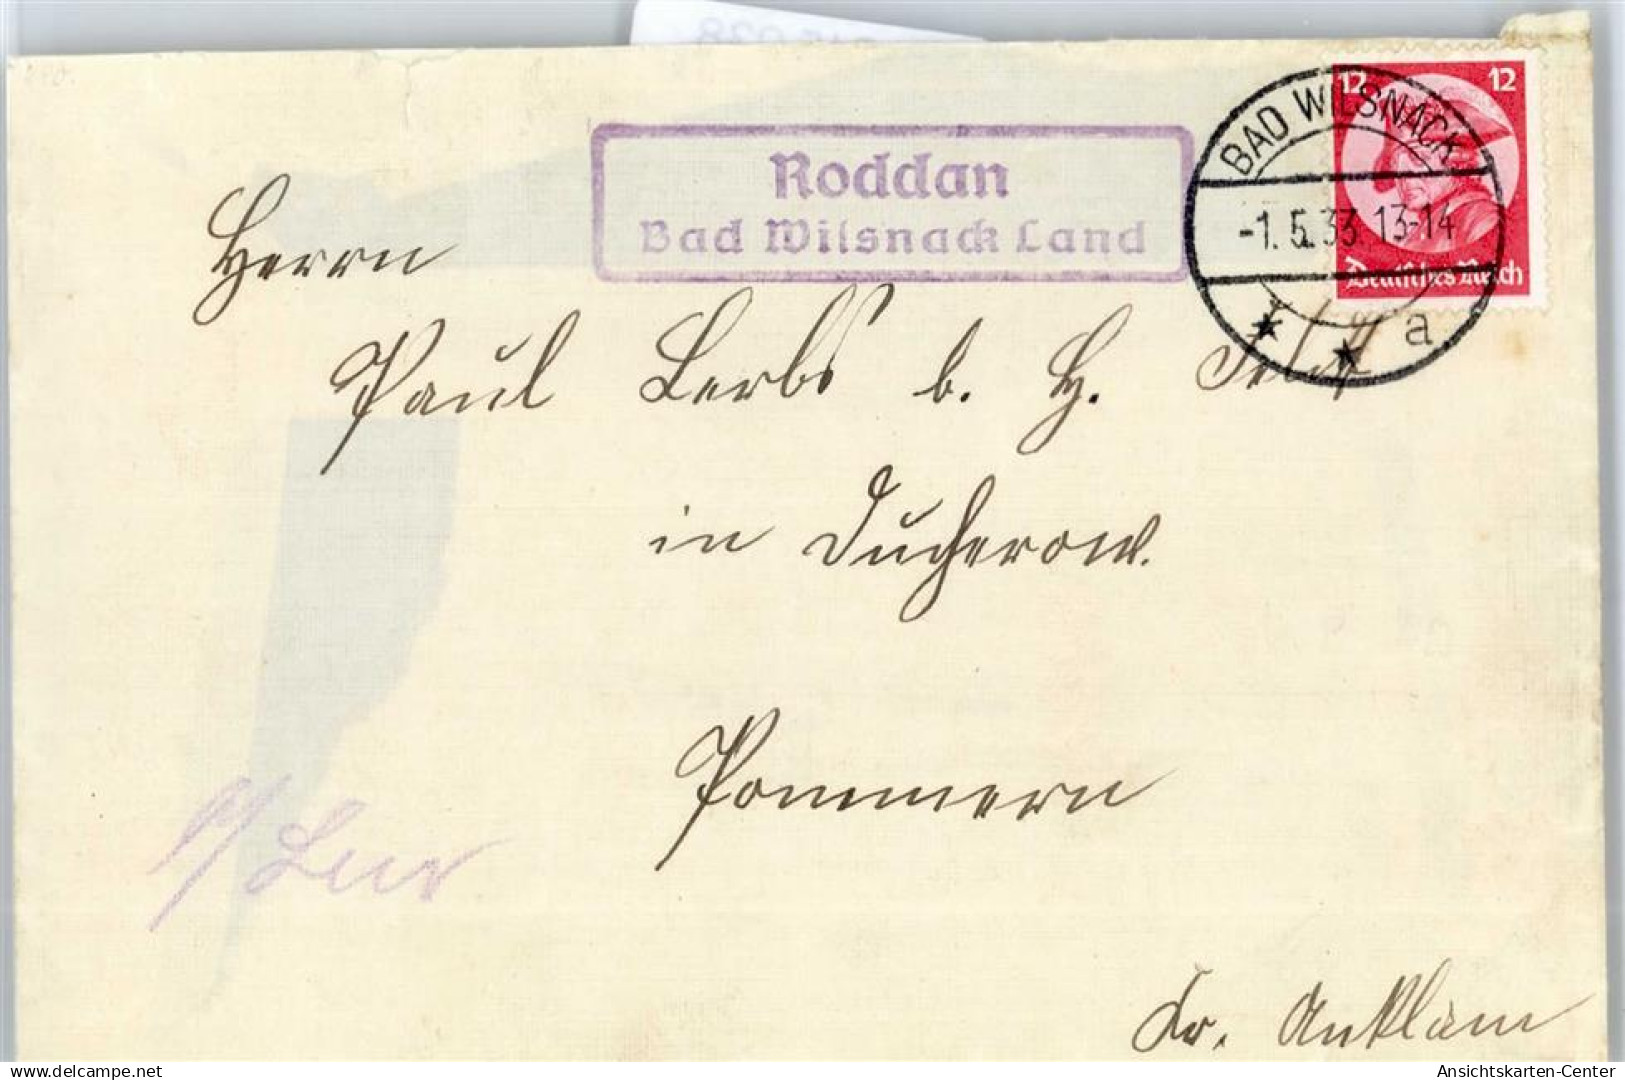 Roddan
Bad Wilsnack Land
BAD WILSNACK
-1.5.33.13-14
a
12 12
Deutsches Reich
Herrn
Paul Lerbs b. H.
in Ducherow.
Pommern
Kr. Anklam
Ansichtskarten-Center